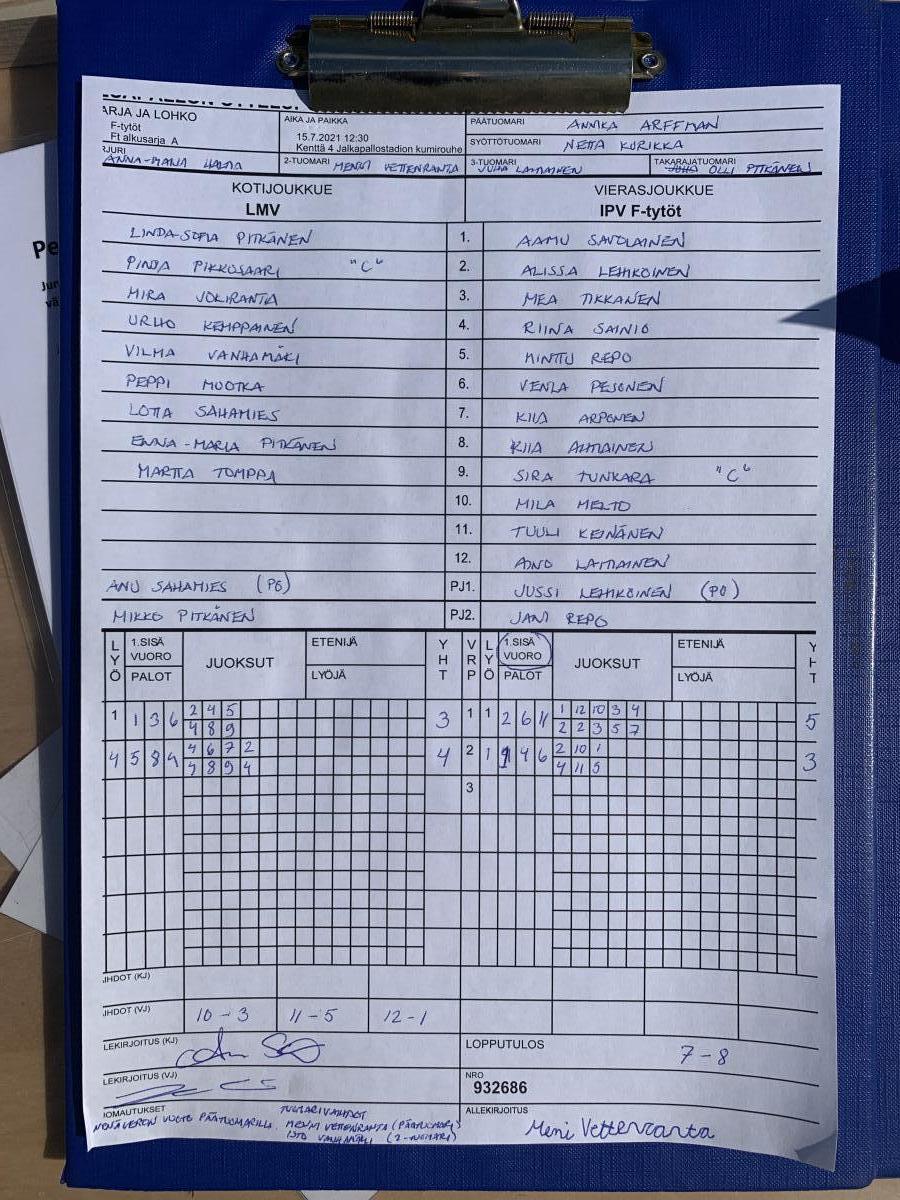 ARJA JA LOHKO
F-tytöt
Ft alkusarja A
AIKA JA PAIKKA
15.7.2021 12:30
Kenttä 4 Jalkapallostadion kumirouhe
PÄÄTUOMARI ANNIKA ARFFMAN
SYÖTTÖTUOMARI NETTA KURIKKA
2-TUOMARI MENNI VETTENRANTA
3-TUOMARI JUHA LAITIAINEN
TAKARAJATUOMARI OLLI PITKÄNEN
KOTIJOUKKUE
LMV
VIERASJOUKKUE
IPV F-tytöt
LINDA-SOFIA PITKÄNEN 1. AAMU SAVOLAINEN
PINJA PIKKUSAARI "C" 2. ALISSA LEHIKOINEN
MIRA JOKIRANTA 3. MEA TIKKANEN
URHO KEMPPAINEN 4. RIINA SAINIO
VILMA VANHAMÄKI 5. MINTTU REPO
PEPPI MUOTKA 6. VENLA PESONEN
LOTTA SAHAMIES 7. KIIA ARPONEN
ENNA-MARIA PITKÄNEN 8. KIIA AHTIAINEN
MARTTA TOMPPA 9. SIRA TUNKARA "C"
10. MILA MELTO
11. TUULI KEINÄNEN
12. AINO LAITIAINEN
ANU SAHAMIES (PO) PJ1. JUSSI LEHIKOINEN (PO)
MIKKO PITKÄNEN PJ2. JANI REPO
LYÖ 1.SISÄ VUORO PALOT JUOKSUT ETENIJÄ LYÖJÄ YHT VRP LYÖ 1.SISÄ VUORO PALOT JUOKSUT ETENIJÄ LYÖJÄ YHT
1 1 3 6 2 4 5 3 1 1 2 6 11 1 12 10 3 4 5
4 8 9 2 2 3 5 7
4 5 8 9 4 6 7 2 4 2 1 9 4 6 2 10 1 3
7 8 9 4 4 11 5
3
IHDOT (KJ)
IHDOT (VJ) 10-3 11-5 12-1
LEKIRJOITUS (KJ)
LOPPUTULOS 7-8
LEKIRJOITUS (VJ)
NRO
932686
IOMAUTUKSET
NENÄVEREN VUOTO PÄÄTUOMARILLA. TUOMARIVAIHDOT
MENNI VETTENRANTA (PÄÄTUOMARI)
VANHAMÄKI (2-TUOMARI)
ALLEKIRJOITUS
Meni Vettenranta